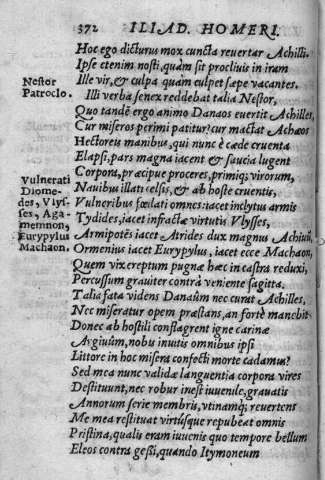 372 ILIAD. HOMERI.
Hoc ego dicturus mox cuncta revertar Achilli.
Ipse etenim nosti, quàm sit proclivis in iram
Ille vir, & culpa quàm culpet sæpe vacantes.
Nestor
Patroclo.
Illi verba senex reddebat talia Nestor,
Quo tandē ergo animo Danaos evertit Achilles,
Cur miseros perimi patitur? cur mactat Achæos
Hectoreis manibus, qui nunc è cæde cruenta
Elapsi, pars magna iacent & saucia lugent
Corpora, præcipue proceres, primiq; virorum,
Vulnerati
Diome-
des, Vlys-
ses, Aga-
memnon,
Eurypylus
Machaon.
Navibus illati celsis, & ab hoste cruentis,
Vulneribus fœdati omnes: iacet inclytus armis
Tydides, iacet infractæ virtutis Vlysses,
Armipotēs iacet Atrides dux magnus Achiuū,
Ormenius iacet Eurypylus, iacet ecce Machaon,
Quem vix ereptum pugnæ hæc in castra reduxi,
Percussum graviter contra veniente sagitta.
Talia fata videns Danaûm nec curat Achilles,
Nec miseratur opem præstans, an fortè manebit
Donec ab hostili conflagrent igne carinæ
Argiuûm, nobis inuitis omnibus ipsi
Littore in hoc misera confecti morte cadamus?
Sed mea nunc validæ languentia corpora vires
Destituunt, nec robur inest iuuenile, grauatis
Annorum serie membris, vtinamq; reuertens
Me mea restituat virtúsque repubeat omnis
Pristina, qualis eram iuuenis quo tempore bellum
Eleos contra gessi, quando Itymoneum